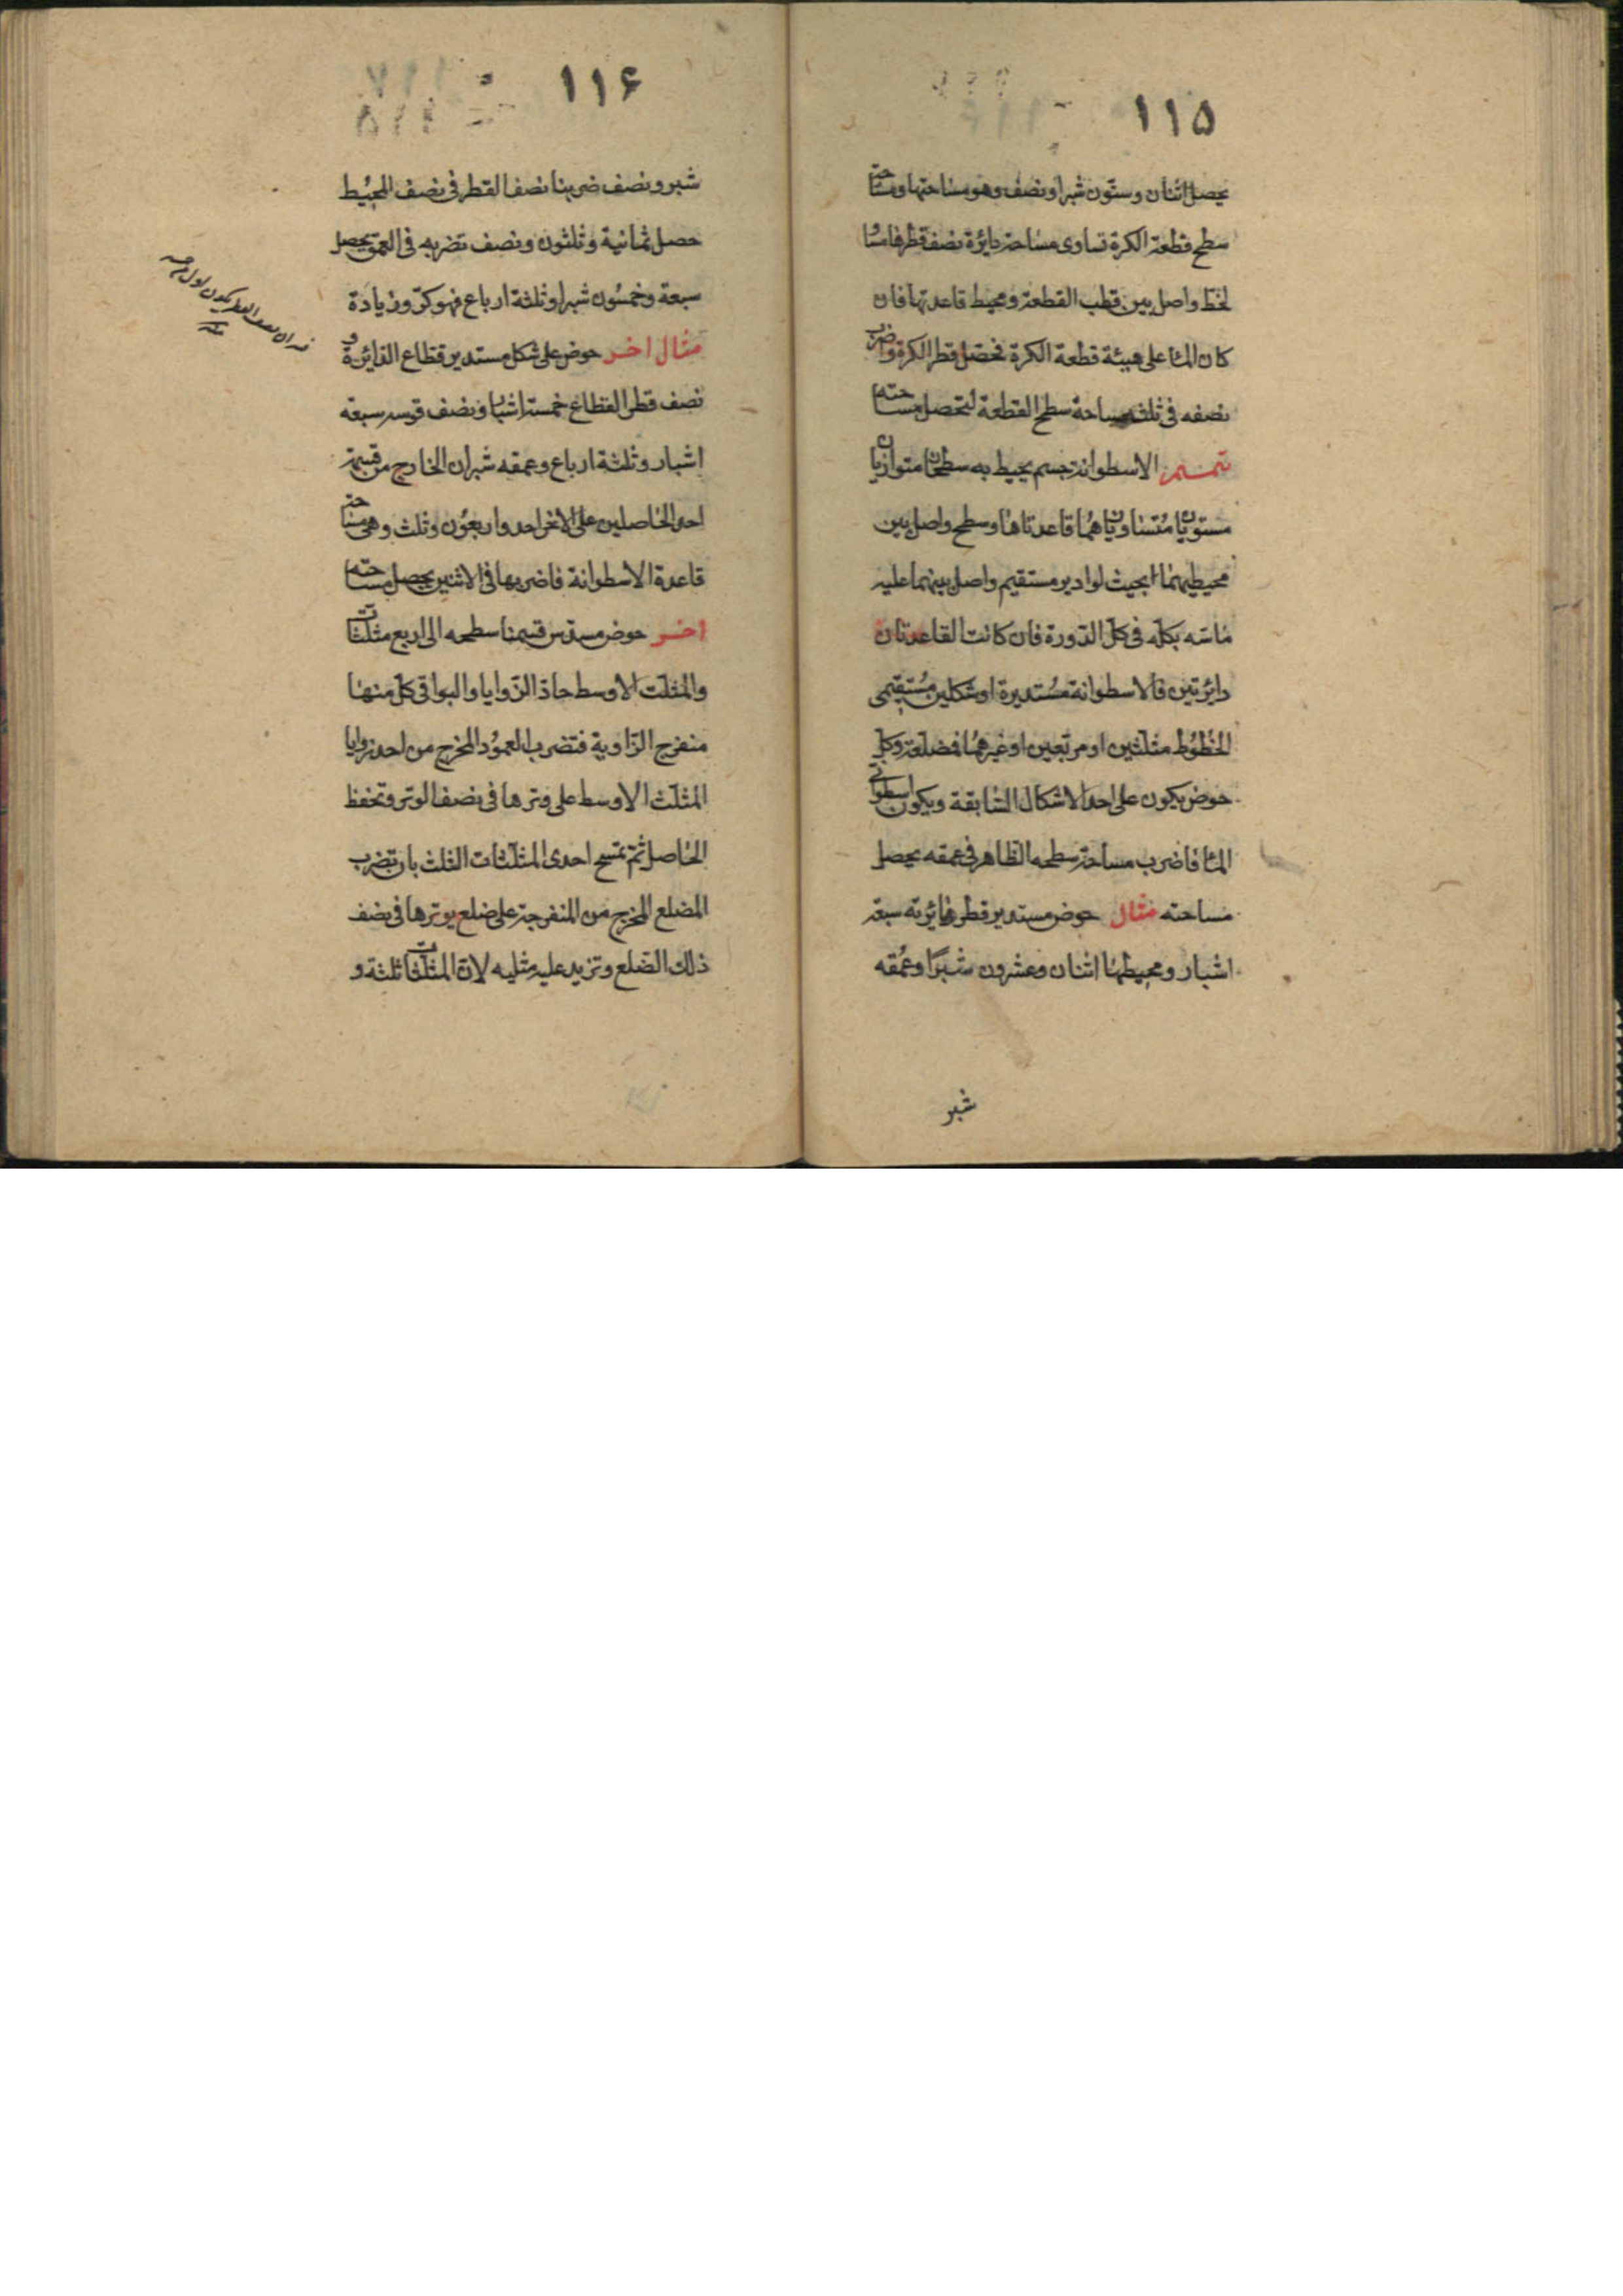 ١١٥
يحصل اثنان وستون شبرا ونصف وهو مساحتها ومساحة
سطح قطعة الكرة تساوى مساحة دايرة نصف قطرها مساو
لخط واصل بين قطب القطعة ومحيط قاعدتها فان
كان الماء على هيئة قطعة الكرة فحصل قطر الكرة واضرب
نصفه فى ثلث مساحة سطح القطعة لتحصل مساحته
تتميم الاسطوانة جسم يحيط به سطحان متوازيان
مستويان متساويان هما قاعدتاها وسطح واصل بين
محيطيهما بحيث لو ادير مستقيم واصل بينهما عليه
ماسه بكله فى كل الدورة فان كانت القاعدتان
دائرتين فالاسطوانة مستديرة او شكلين مستقيمى
الخطوط مثلثين او مربعين او غيرهما فمضلعة وكل
حوض يكون على احد الاشكال السابقة ويكون اسطوانى
الماء فاضرب مساحة سطحه الظاهر فى عمقه يحصل
مساحته مثال حوض مستدير قطر دايرته سبعة
اشبار ومحيطها اثنان وعشرون شبرا وعمقه
شبر
١١۶
شبر ونصف ضربنا نصف القطر فى نصف المحيط
حصل ثمانية وثلثون ونصف تضربه فى العمق يحصل
سبعة وخمسون شبرا وثلثة ارباع فهو كر وزيادة
مثال اخر حوض على شكل مستدير قطاع الدائرة و
نصف قطر القطاع خمسة اشبار ونصف قوسه سبعة
اشبار وثلثة ارباع وعمقه شبران الخارج من قسمة
احد الحاصلين على الاخر احد واربعون وثلث وهى مساحة
قاعدة الاسطوانة فاضربها فى الاثنين يحصل مساحته
اخر حوض مسدس قسمنا سطحه الى اربع مثلثات
والمثلث الاوسط حاد الزوايا والبواقى كل منها
منفرج الزاوية فتضرب العمود المخرج من احد زوايا
المثلث الاوسط على وترها فى نصف الوتر وتحفظ
الحاصل ثم تمسح احدى المثلثات الثلث بان تضرب
المضلع المخرج من المنفرجة على ضلع يوترها فى نصف
ذلك الضلع وتزيد عليه مثليه لان المثلثات ثلثة و